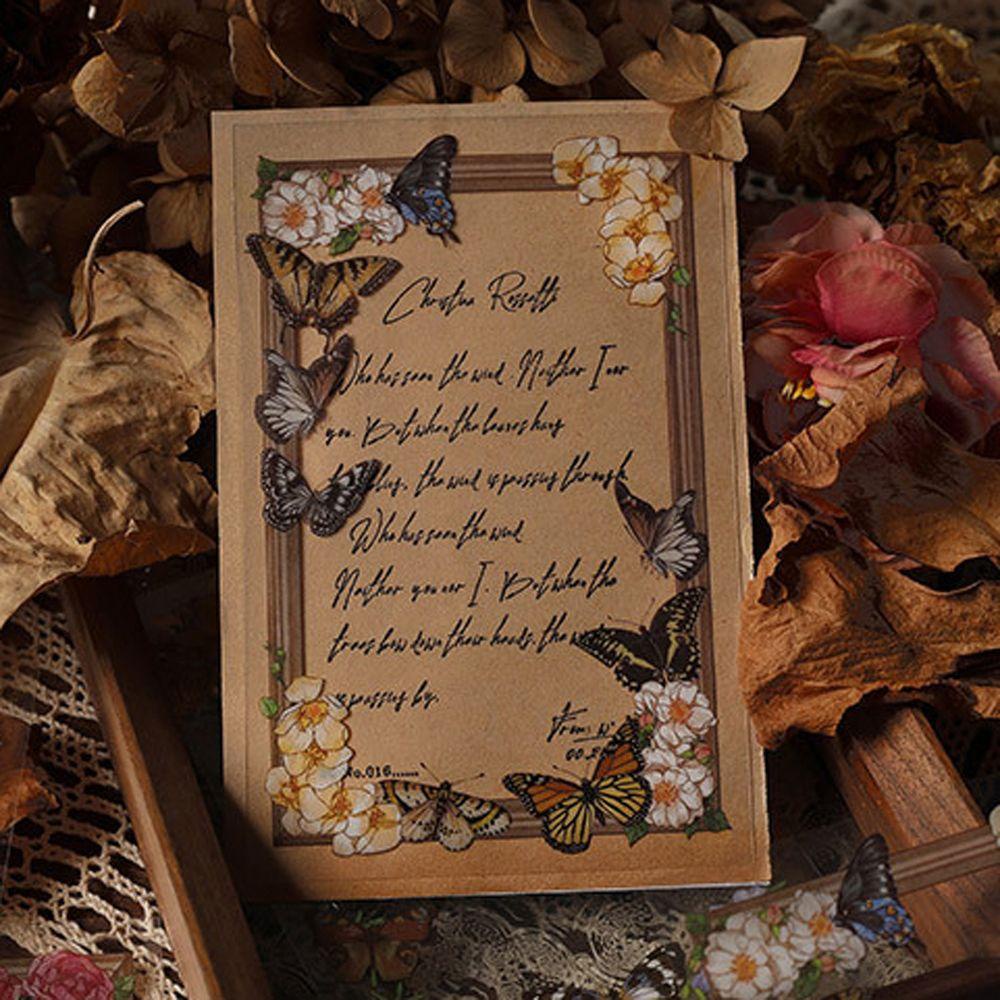 Christina Rossetti
Who has seen the wind. Neither I nor
you. But when the leaves hang
the wind is passing through.
Who has seen the wind
Neither you nor I. But when the
trees bow down their heads, the
is passing by.
From:
No.016......